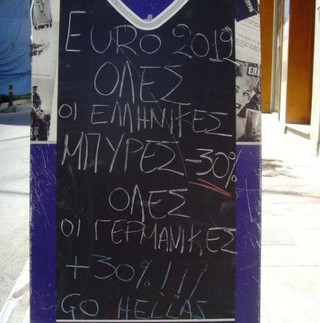 EURO 2012
ΟΛΕΣ
ΟΙ ΕΛΛΗΝΙΚΕΣ
ΜΠΥΡΕΣ -30%
ΟΛΕΣ
ΟΙ ΓΕΡΜΑΝΙΚΕΣ
+30%!!!
GO HELLAS